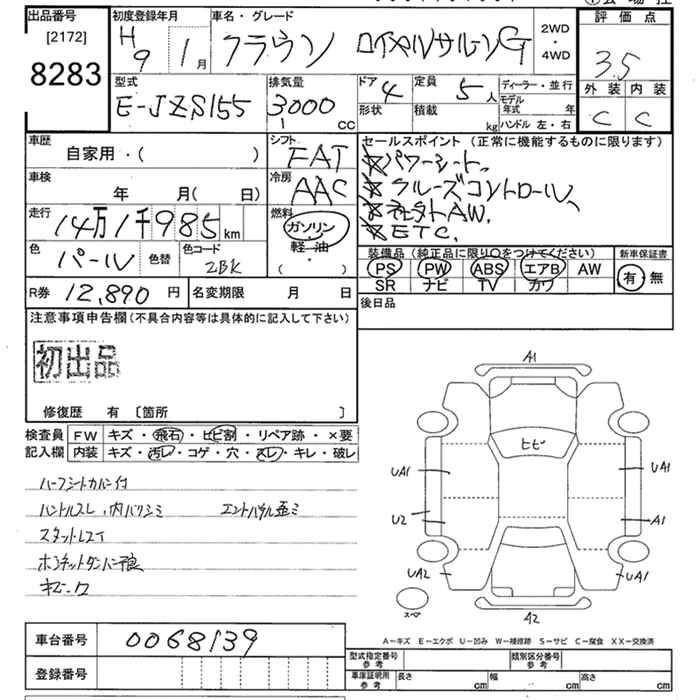 出品番号
[2172]
8283
初度登録年月
H9 1月
車名・グレード
クラウン ロイヤルサルーンG
2WD
・
4WD
評価点
3.5
外装 内装
C C
型式
E-JZS155
排気量
3000
cc
ドア
4
形状
定員
5人
積載
kg
ディーラー・並行
モデル年式 年
ハンドル 左・右
車歴
自家用・( )
車検
年 月( 日)
走行
14万1千985km
色
パール
色替
色コード
2BK
シフト
FAT
冷房
AAC
燃料
ガソリン
・
軽・油
( ・ )
セールスポイント(正常に機能するものに限ります)
☆パワーシート、
☆クルーズコントロール、
☆社外AW.
☆ETC.
装備品(純正品に限り○をつけてください)
PS PW ABS エアB AW
SR ナビ TV カワ
新車保証書
有・無
R券 12,890円
名変期限 月 日
後日品
注意事項申告欄(不具合内容等は具体的に記入して下さい)
初出品
修復歴 有 〔箇所 〕
検査員 FW キズ・飛石・ヒビ割・リペア跡・×要
記入欄 内装 キズ・汚レ・コゲ・穴・スレ・キレ・破レ
ハーフシートカバー付
ハンドルスレ、内バリシミ
スタットレスイ
A1
ヒビ
UA1 UA1
U2 A1
UA2 UA1
スペア
A2
A-キズ E-エクボ U-凹み W-補修跡 S-サビ C-腐食 XX-交換済
車台番号 0068139
登録番号
型式指定番号
参考
類別区分番号
参考
車庫証明用
参考
長さ cm 幅 cm 高さ cm